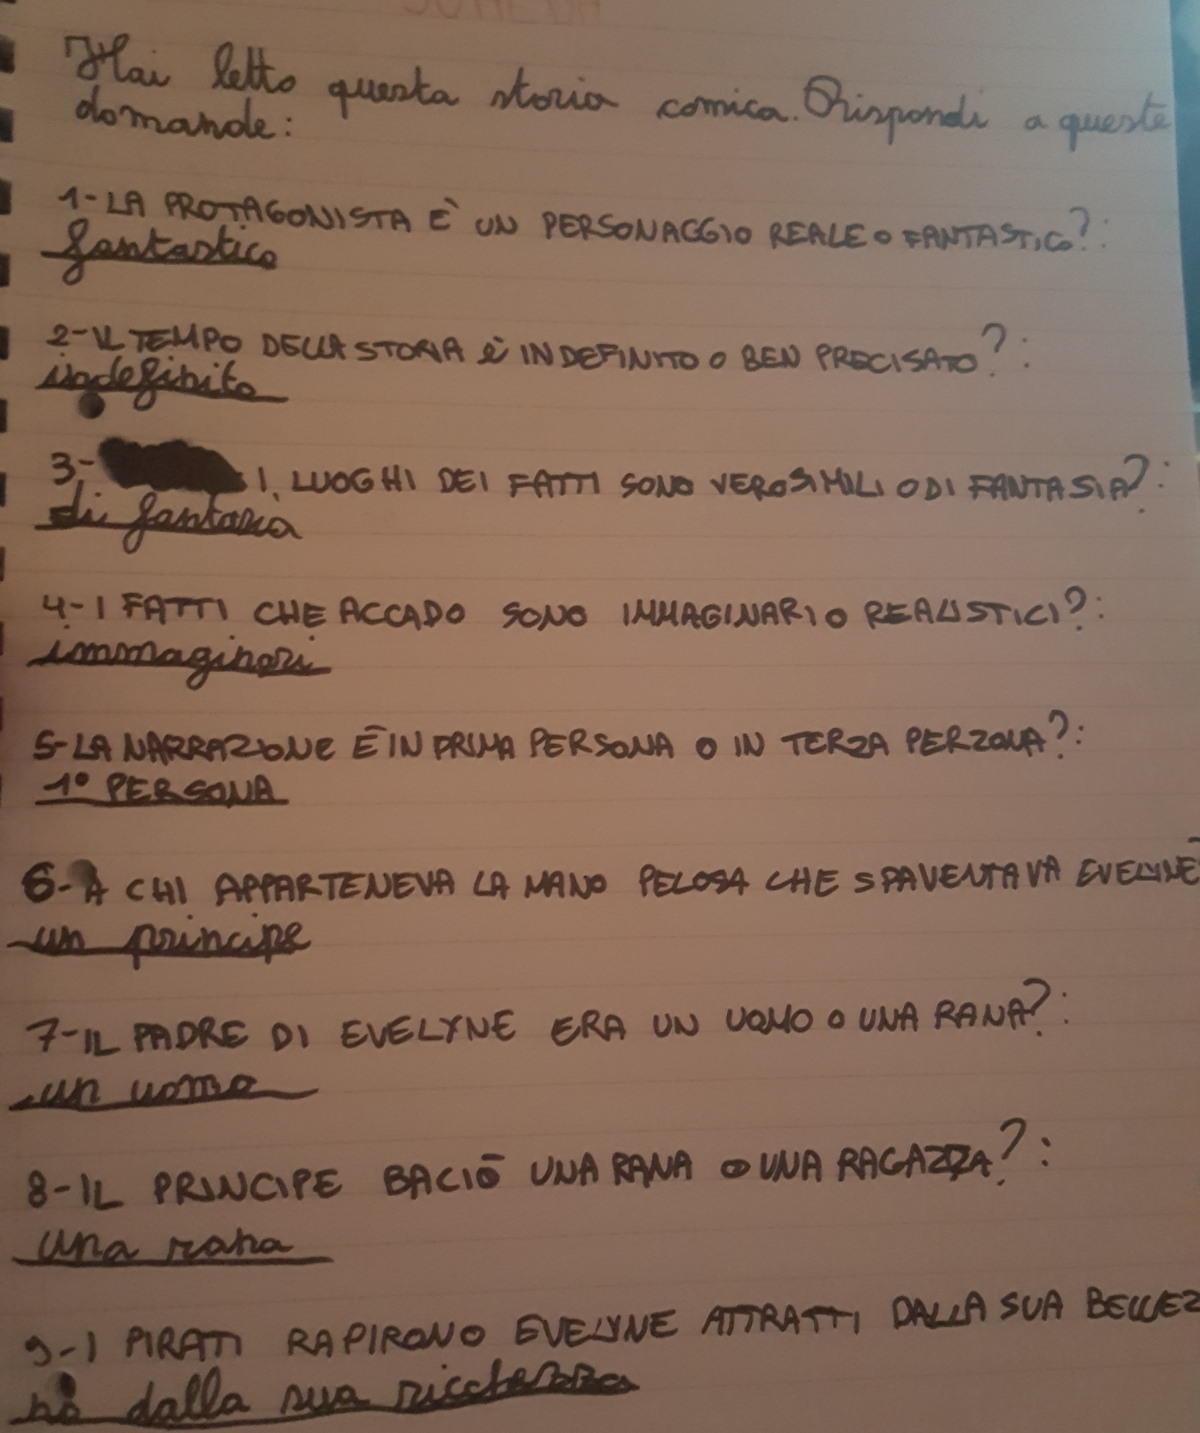 Hai letto questa storia comica. Rispondi a queste
domande:
1-LA PROTAGONISTA È UN PERSONAGGIO REALE O FANTASTICO?:
fantastico
2-IL TEMPO DELLA STORIA È INDEFINITO O BEN PRECISATO?:
indefinito
3- I LUOGHI DEI FATTI SONO VEROSIMILI O DI FANTASIA?:
di fantasia
4-I FATTI CHE ACCADO SONO IMMAGINARI O REALISTICI?:
immaginari
5-LA NARRAZIONE È IN PRIMA PERSONA O IN TERZA PERZONA?:
1° PERSONA
6-A CHI APPARTENEVA LA MANO PELOSA CHE SPAVENTAVA EVELYNE
un principe
7-IL PADRE DI EVELYNE ERA UN UOMO O UNA RANA?:
un uomo
8-IL PRINCIPE BACIÒ UNA RANA O UNA RAGAZZA?:
una rana
9-I PIRATI RAPIRONO EVELYNE ATTRATTI DALLA SUA BELLEZ
no dalla sua ricchezza